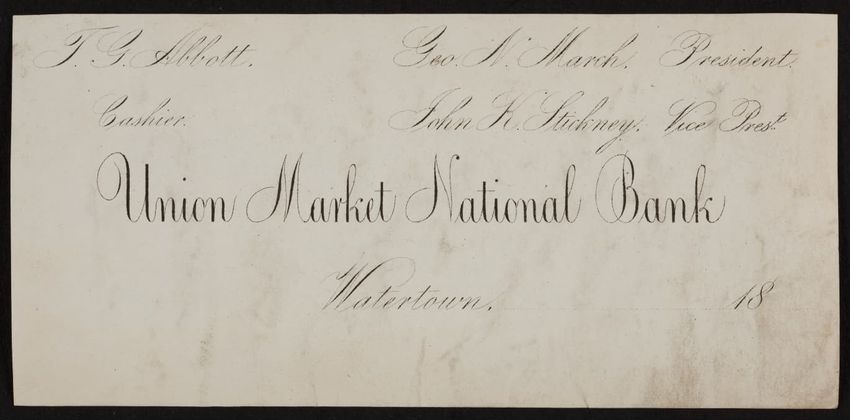 T. G. Abbott. Geo. N. March. President.
Cashier. John K. Stickney. Vice Prest.
Union Market National Bank
Watertown. 18